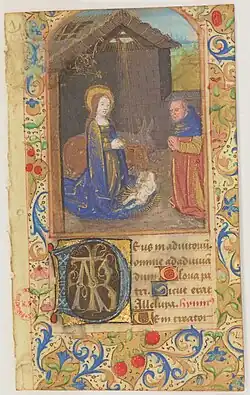 Deus in adiutoriu
omne ad adiuua
dum Gloria pa
tri Sicut erat
Alleluya. hymnus
Veni creator